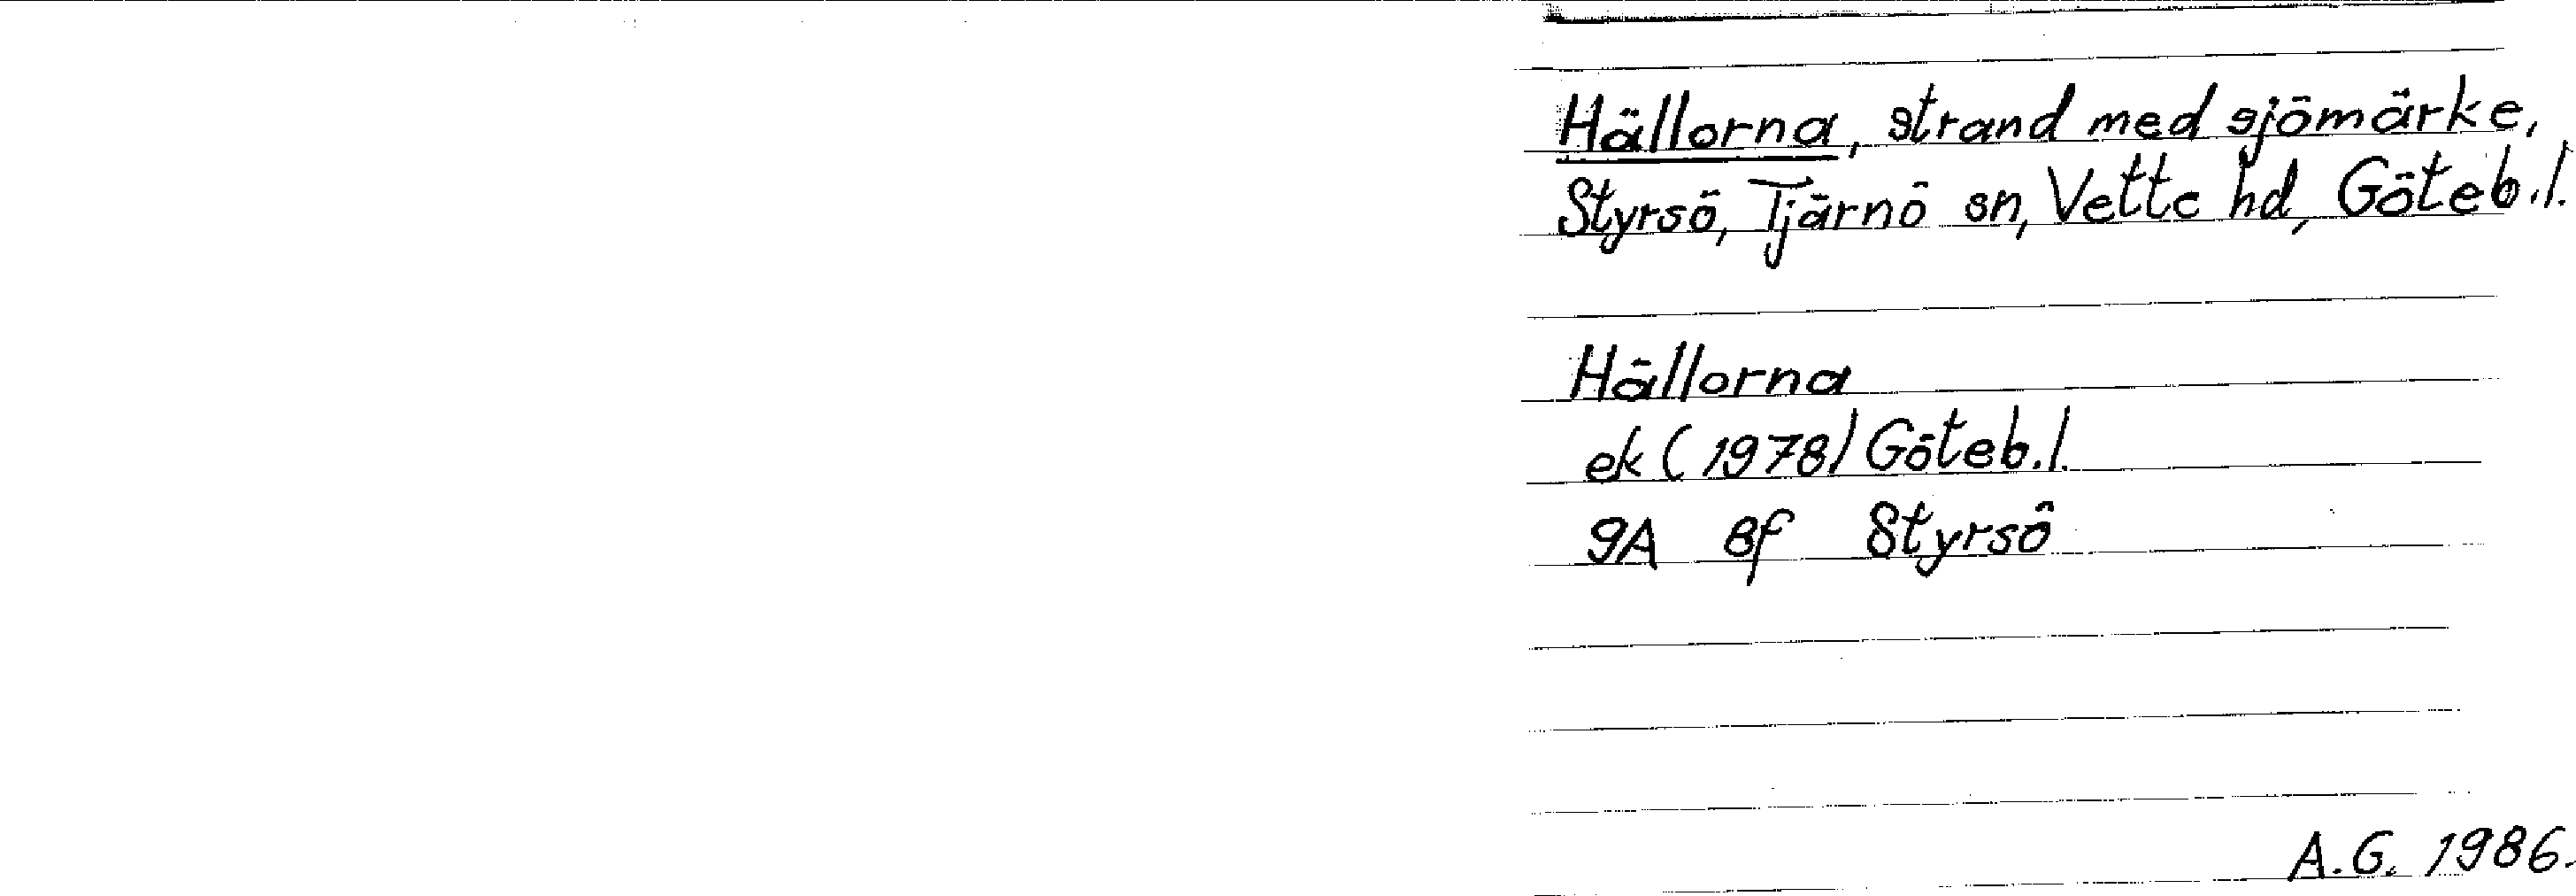 Hällorna, strand med sjömärke,
Styrsö, Tjärnö sn, Vette hd, Göteb.l.
Hällorna
ek (1978) Göteb.l.
9A 8f Styrsö
A.G. 1986.